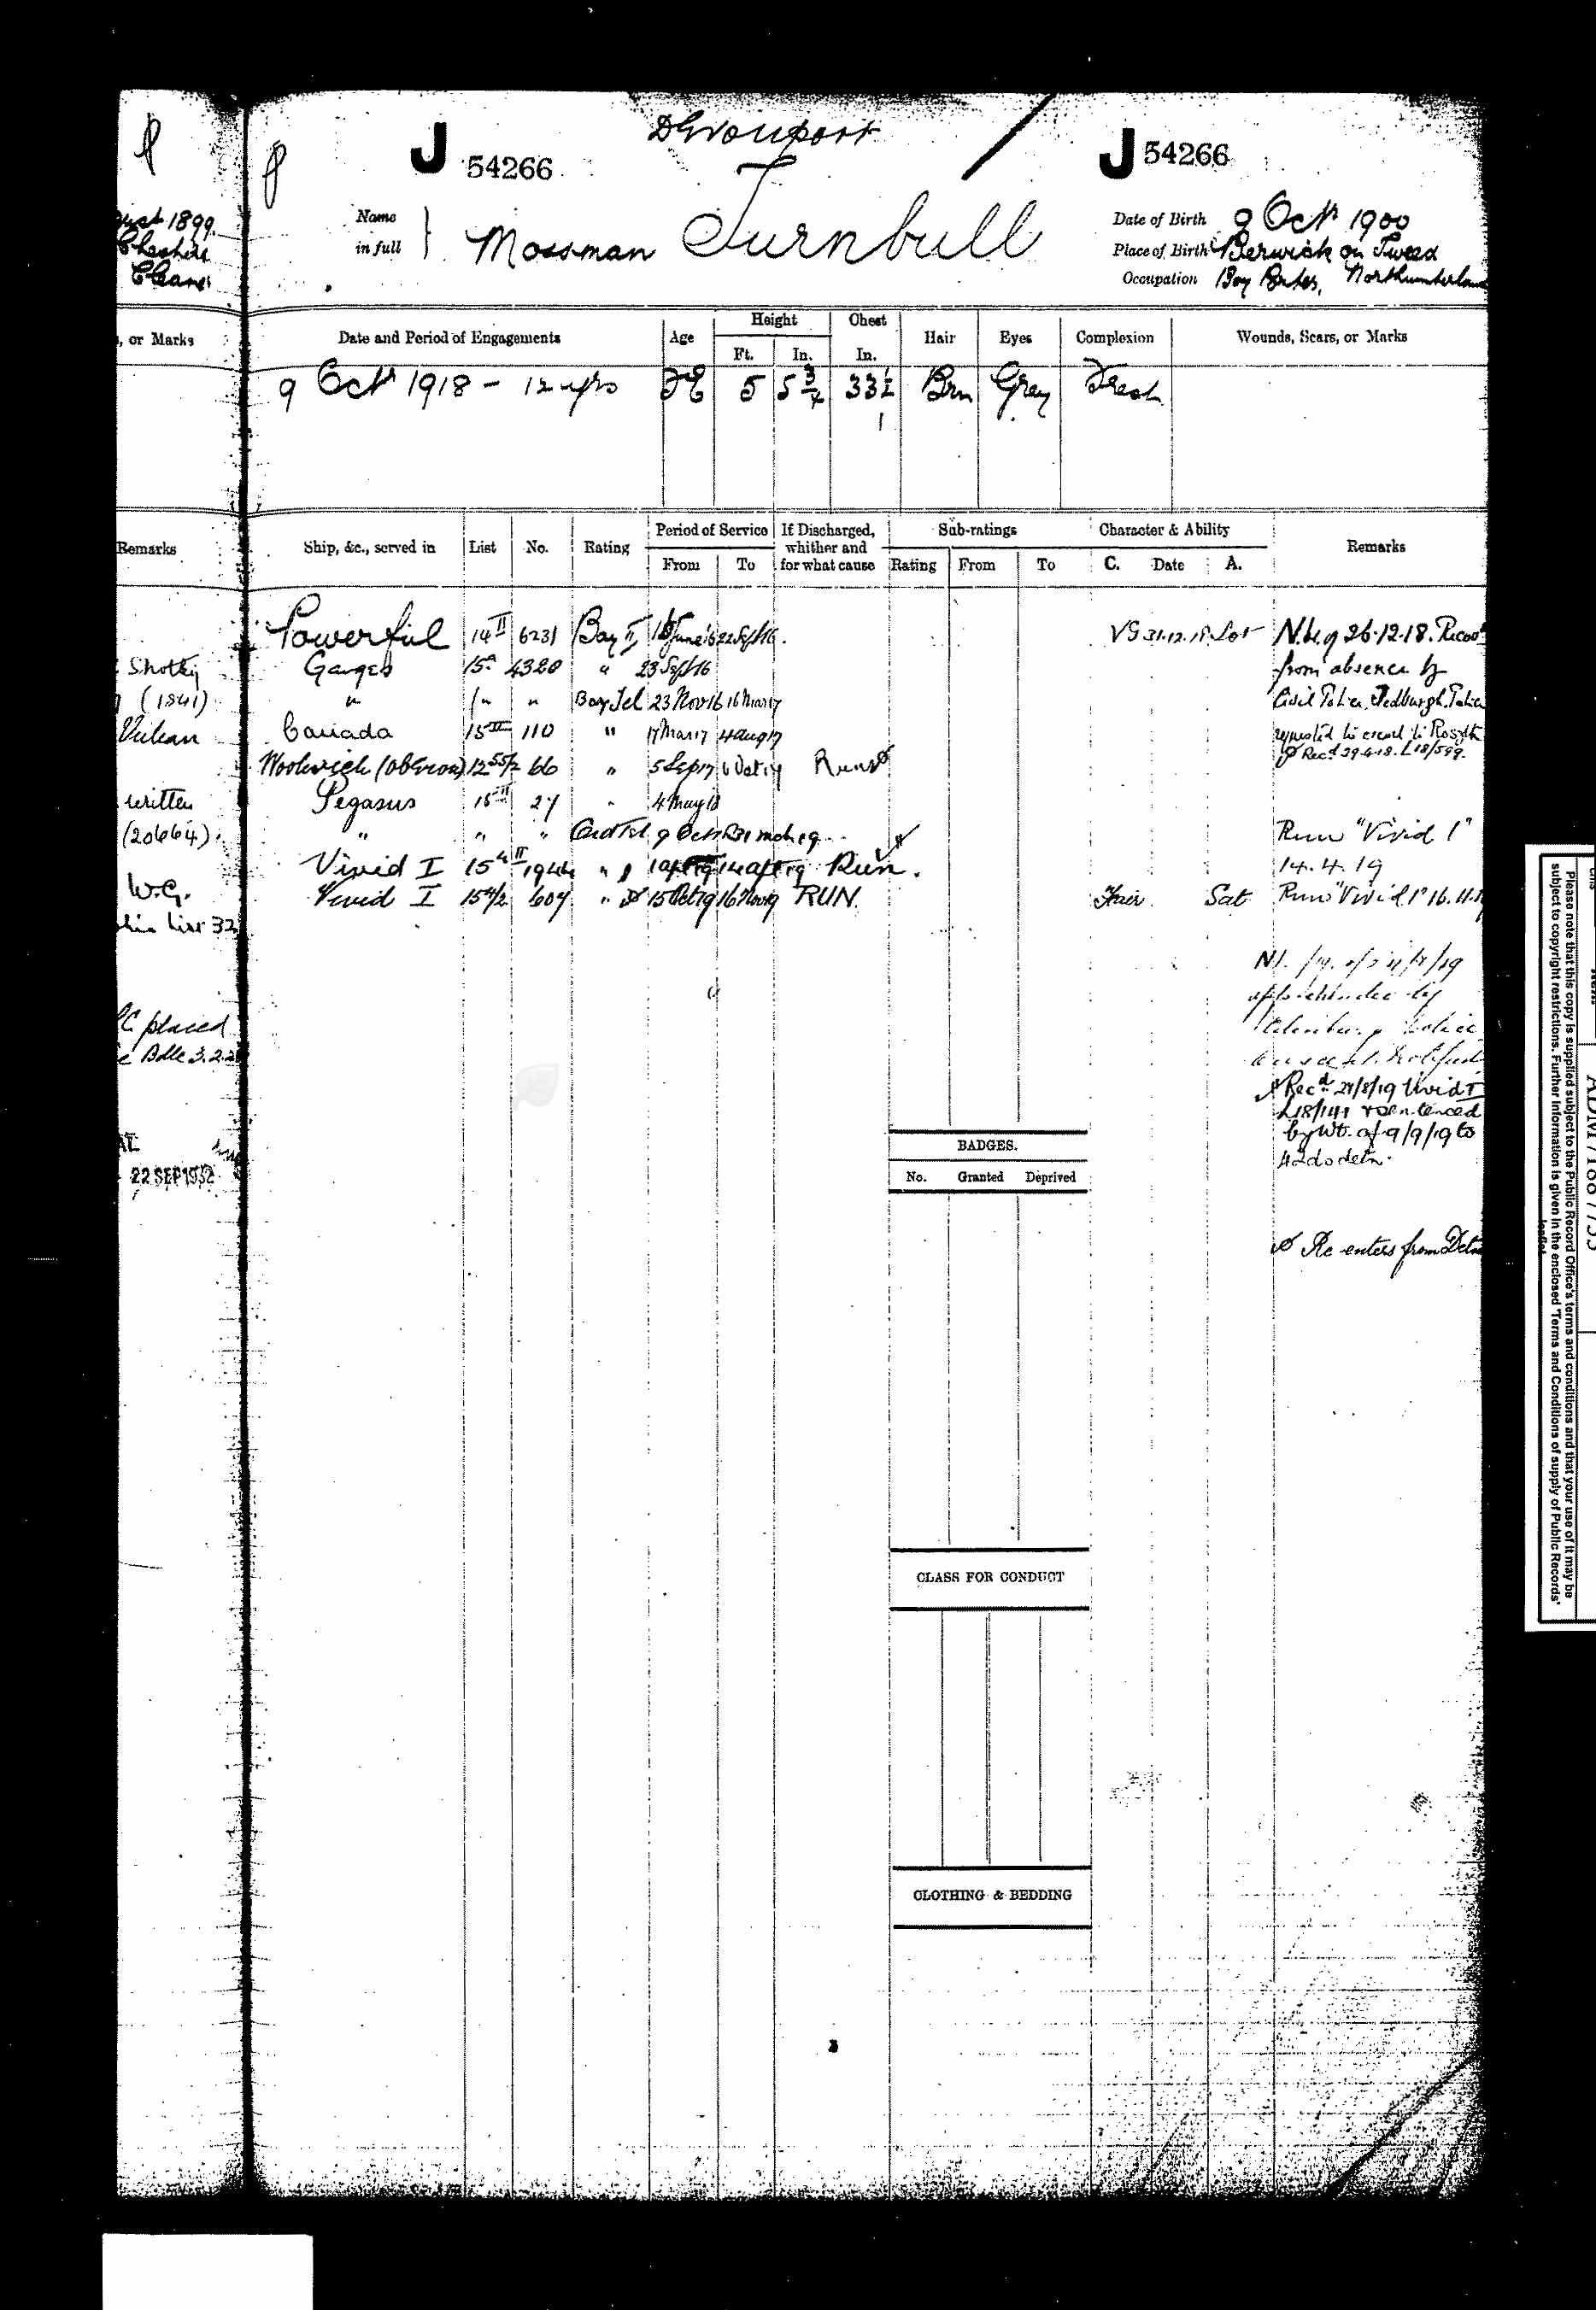 Devonport
J 54266
J 54266
Name in full } Mossman Turnbull
Date of Birth 9 Octr 1900
Place of Birth Berwick on Tweed
Occupation Boy Porter, Northumberland
ust 1899.
Cheshire
Cleaner
, or Marks
Date and Period of Engagements Age Height Ft. In. Chest In. Hair Eyes Complexion Wounds, Scars, or Marks
9 Octr 1918 - 12 yrs 5 5 3/4 33 1/2 Brn Grey Fresh
1
Remarks
Ship, &c., served in List No. Rating Period of Service From To If Discharged, whither and for what cause Sub-ratings Rating From To Character & Ability C. Date A. Remarks
Powerful 14 II 6231 Boy II June 16 22 Sept 16. VG 31.12.18
Ganges 15 4320 " 23 Sept 16
" " " Boy Tel 23 Nov 16 16 Mar 17
Canada 15 III 110 " 17 Mar 17 4 Aug 17
Woolwich (Oberon) 12 55/2 66 " 5 Sep 17 6 Oct 17 Run
Pegasus 15 II 27 " 4 May 18
" " " Ord Tel 9 Oct 18 31 Mch 19
Vivid I 15 4 II 1944 " 1 Apl 19 14 Apl 19 Run.
Vivid I 15 4/2 607 " 15 Oct 19 16 Nov 19 RUN. Fair. Sat
from absence by
Civil Police, Jedburgh. Police
requested to escort to Rosyth
Recd 29.4.18. L18/599.
Run "Vivid 1"
14.4.19
Run "Vivid 1" 16.11.19
apprehended by
Police
Recd 28/8/19 Vivid I
L18/141 & sentenced
by Wt. of 9/9/19 to
42 ds detn.
Re enters from Detn
Shotley
(1841)
Vulcan
written
(20664).
W.G.
List 32
placed
Bdle 3.2.2
22 SEP 1952
BADGES.
No. Granted Deprived
CLASS FOR CONDUCT
CLOTHING & BEDDING
Please note that this copy is supplied subject to the Public Record Office's terms and conditions and that your use of it may be
subject to copyright restrictions. Further information is given in the enclosed 'Terms and Conditions of supply of Public Records'
leaflet